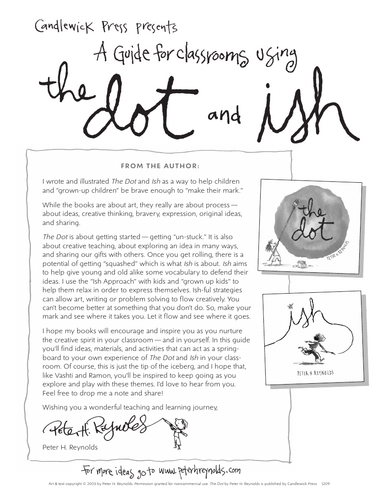 Candlewick Press presents
A Guide for classrooms using
the dot and ish
FROM THE AUTHOR:
I wrote and illustrated The Dot and Ish as a way to help children
and “grown-up children” be brave enough to “make their mark.”
While the books are about art, they really are about process —
about ideas, creative thinking, bravery, expression, original ideas,
and sharing.
The Dot is about getting started — getting “un-stuck.” It is also
about creative teaching, about exploring an idea in many ways,
and sharing our gifts with others. Once you get rolling, there is a
potential of getting “squashed” which is what Ish is about. Ish aims
to help give young and old alike some vocabulary to defend their
ideas. I use the “Ish Approach” with kids and “grown up kids” to
help them relax in order to express themselves. Ish-ful strategies
can allow art, writing or problem solving to flow creatively. You
can’t become better at something that you don’t do. So, make your
mark and see where it takes you. Let it flow and see where it goes.
I hope my books will encourage and inspire you as you nurture
the creative spirit in your classroom — and in yourself. In this guide
you’ll find ideas, materials, and activities that can act as a spring-
board to your own experience of The Dot and Ish in your class-
room. Of course, this is just the tip of the iceberg, and I hope that,
like Vashti and Ramon, you’ll be inspired to keep going as you
explore and play with these themes. I’d love to hear from you.
Feel free to drop me a note and share!
Wishing you a wonderful teaching and learning journey,
Peter H. Reynolds
Peter H. Reynolds
the
dot
PETER H. REYNOLDS
ish
PETER H. REYNOLDS
for more ideas go to www.peterhreynolds.com
Art & text copyright © 2010 by Peter H. Reynolds. Permission granted for noncommercial use. The Dot by Peter H. Reynolds is published by Candlewick Press.